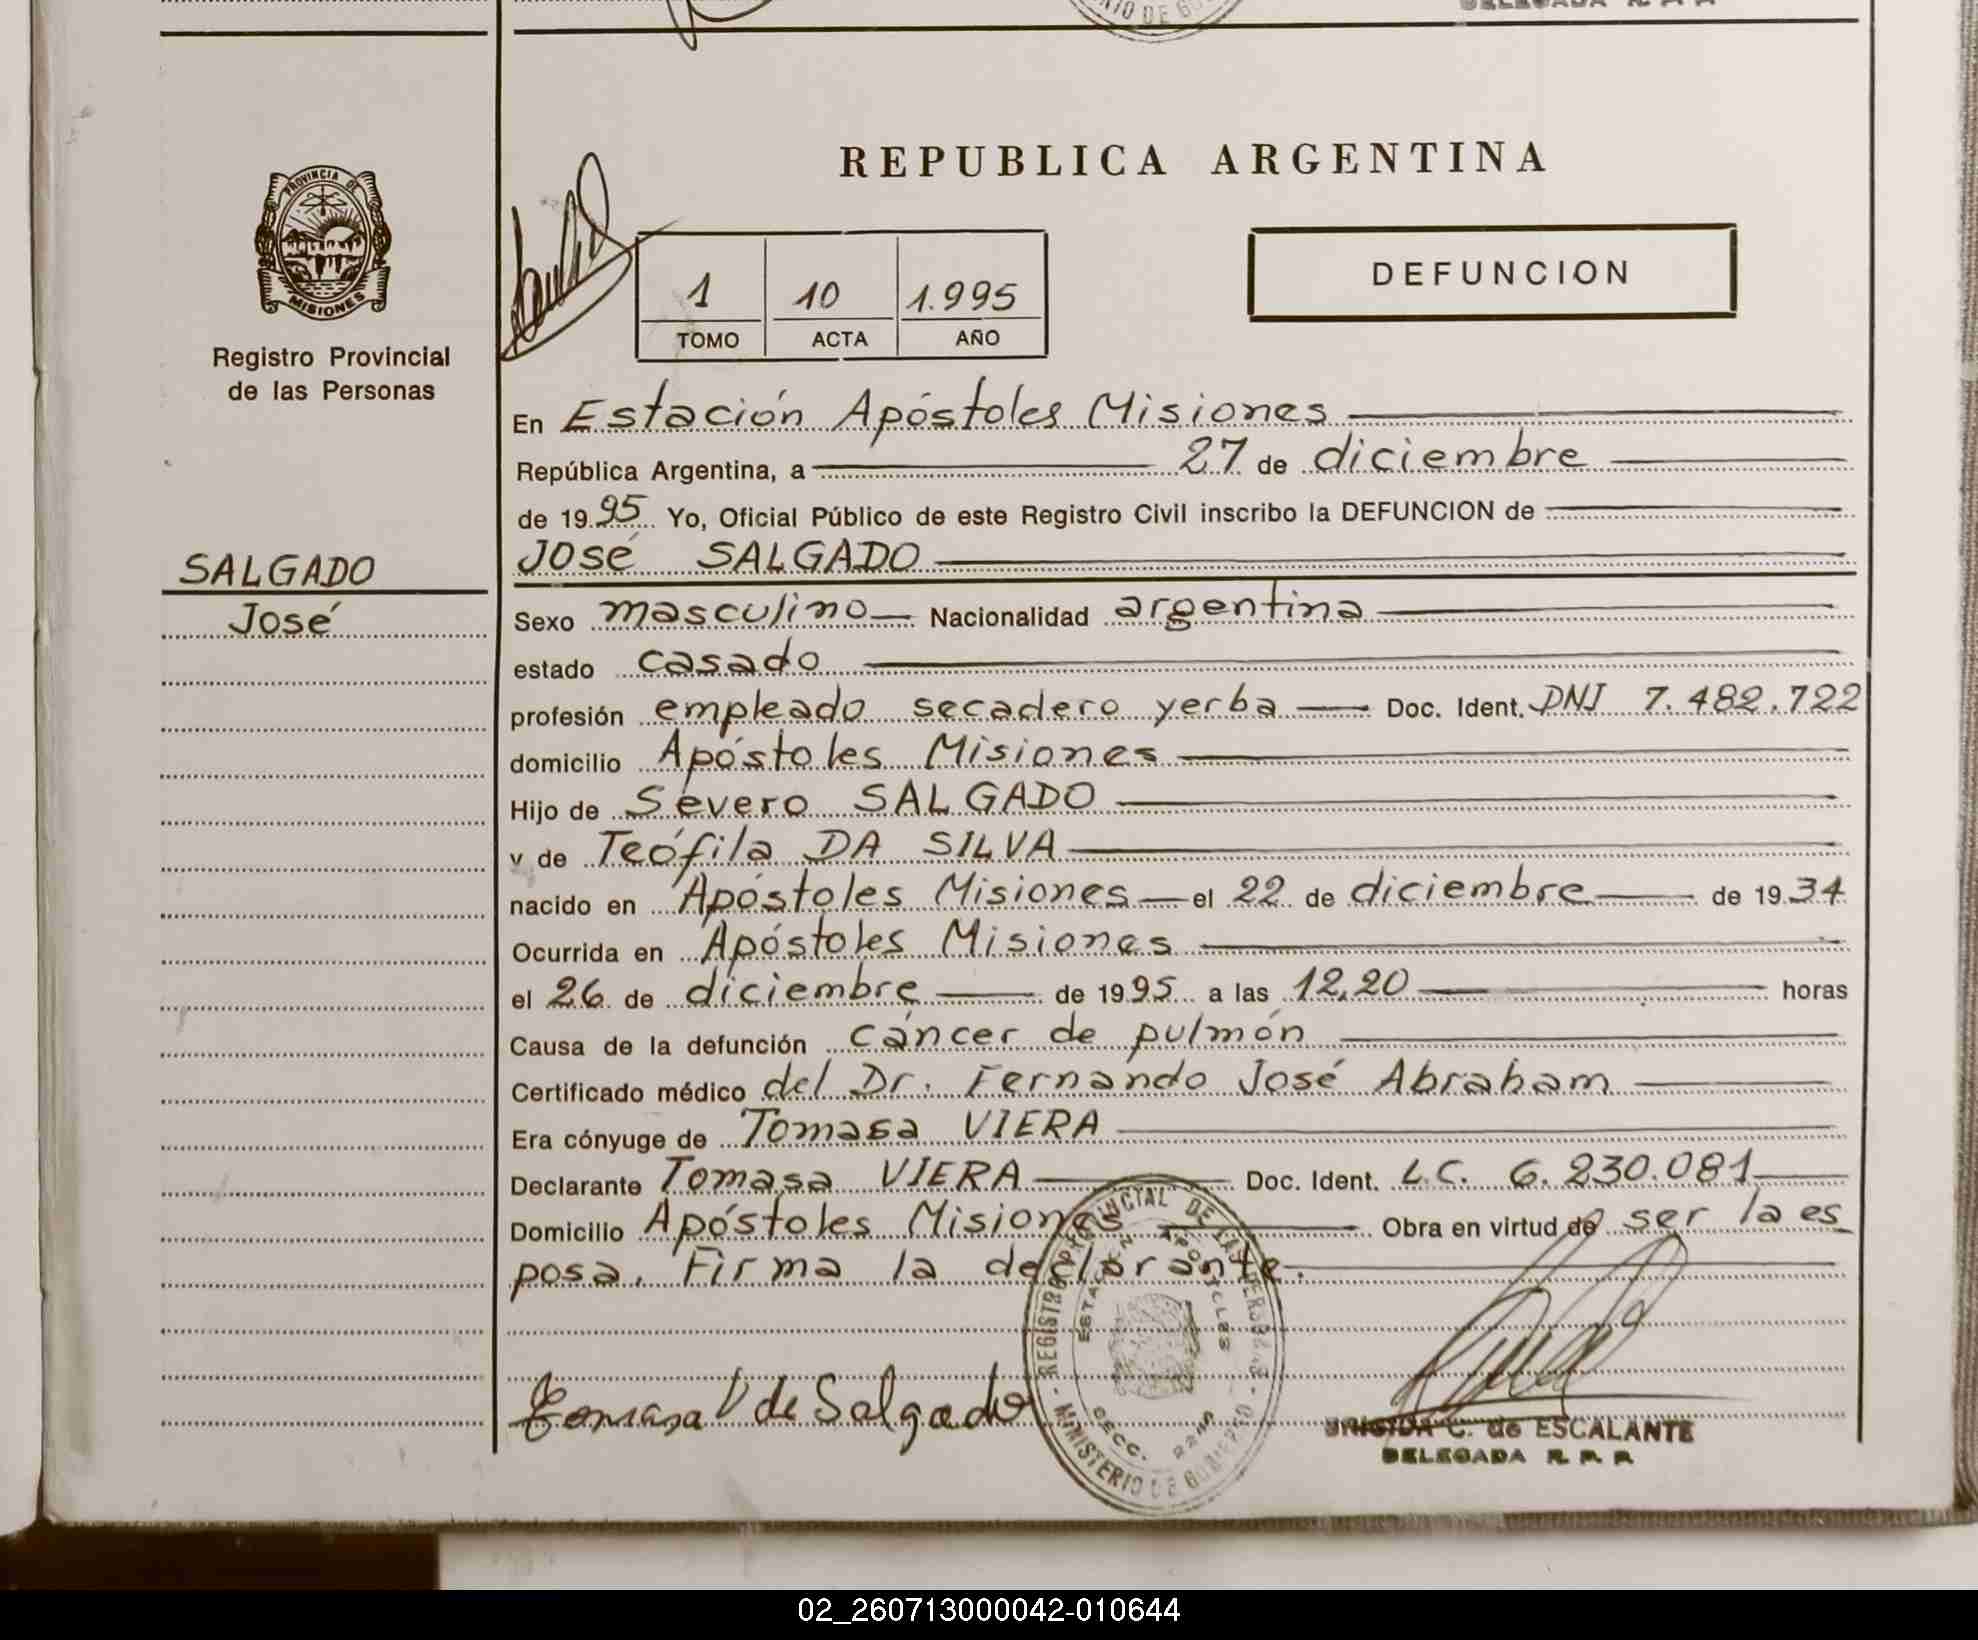 DELEGADA R. P. P.
REPUBLICA ARGENTINA
PROVINCIA DE
MISIONES
Registro Provincial
de las Personas
1 10 1.995
TOMO ACTA AÑO
DEFUNCION
En Estación Apóstoles Misiones
República Argentina, a 27 de diciembre
de 1995 Yo, Oficial Público de este Registro Civil inscribo la DEFUNCION de
José SALGADO
SALGADO
José
Sexo masculino Nacionalidad argentina
estado casado
profesión empleado secadero yerba Doc. Ident. DNI 7.482.722
domicilio Apóstoles Misiones
Hijo de Severo SALGADO
y de Teófila DA SILVA
nacido en Apóstoles Misiones el 22 de diciembre de 1934
Ocurrida en Apóstoles Misiones
el 26 de diciembre de 1995 a las 12,20 horas
Causa de la defunción cáncer de pulmón
Certificado médico del Dr. Fernando José Abraham
Era cónyuge de Tomasa VIERA
Declarante Tomasa VIERA Doc. Ident. L.C. 6.230.081
Domicilio Apóstoles Misiones Obra en virtud de ser la es
posa. Firma la declarante.
REGISTRO PROVINCIAL DE LAS PERSONAS
ESTACION APOSTOLES
SECC.
MINISTERIO DE GOBIERNO
Tomasa V de Salgado
BRIGIDA C. de ESCALANTE
DELEGADA R. P. P.
02_260713000042-010644